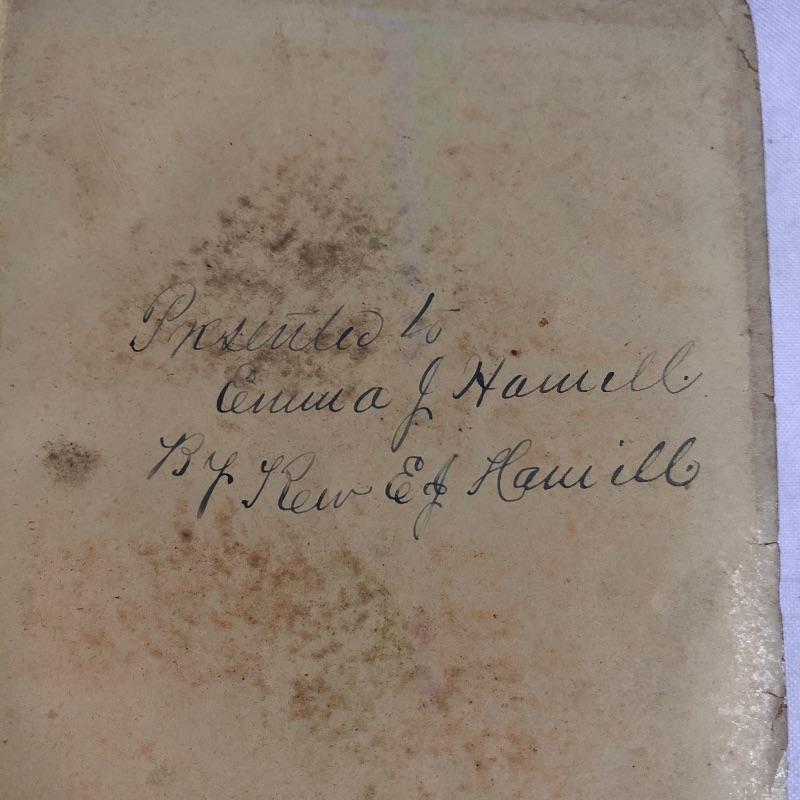 Presented to
Emma J Hamill
By Rev E J Hamill